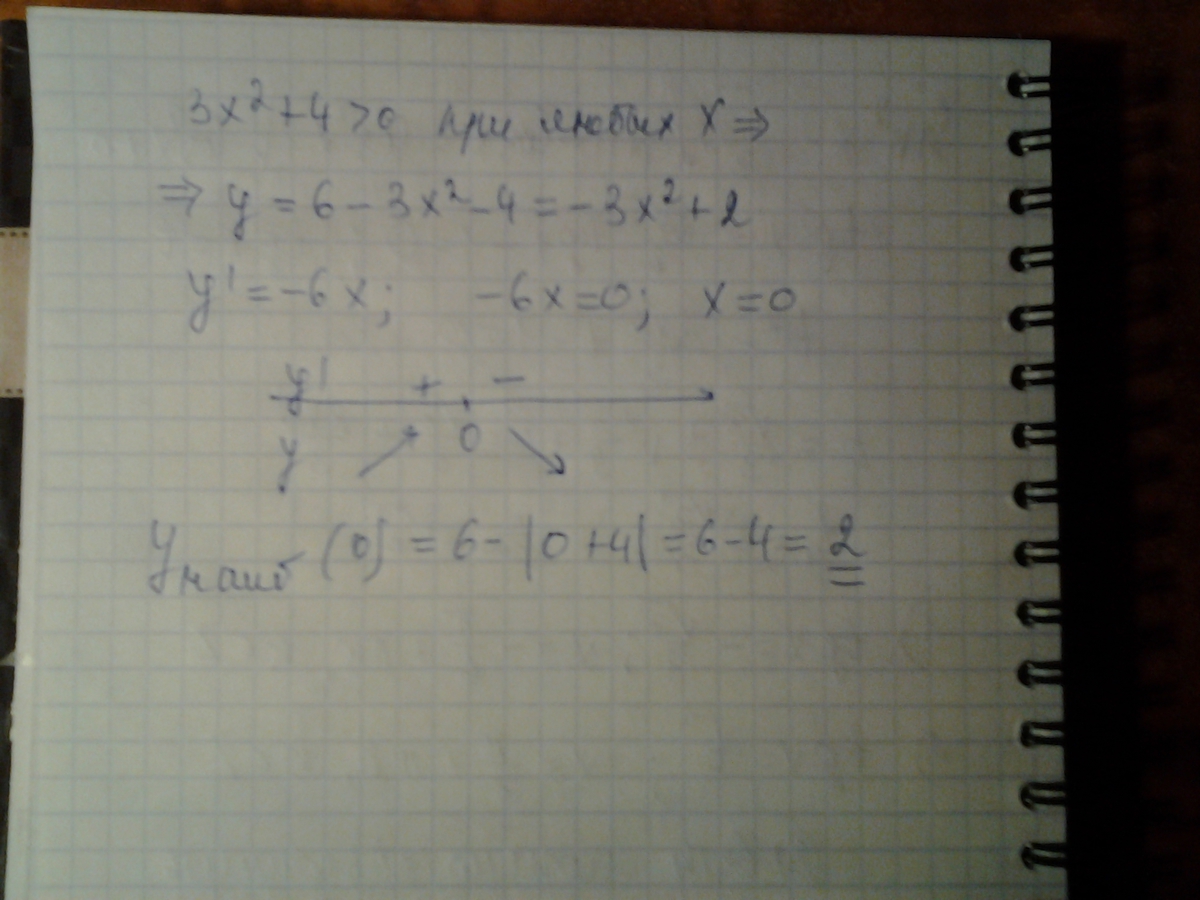 3x²+4>0 при любых x ⇒
⇒ y = 6-3x²-4 = -3x²+2
y' = -6x; -6x=0; x=0
y' + -
y ↗ 0 ↘
y наиб (0) = 6-|0+4| = 6-4 = 2